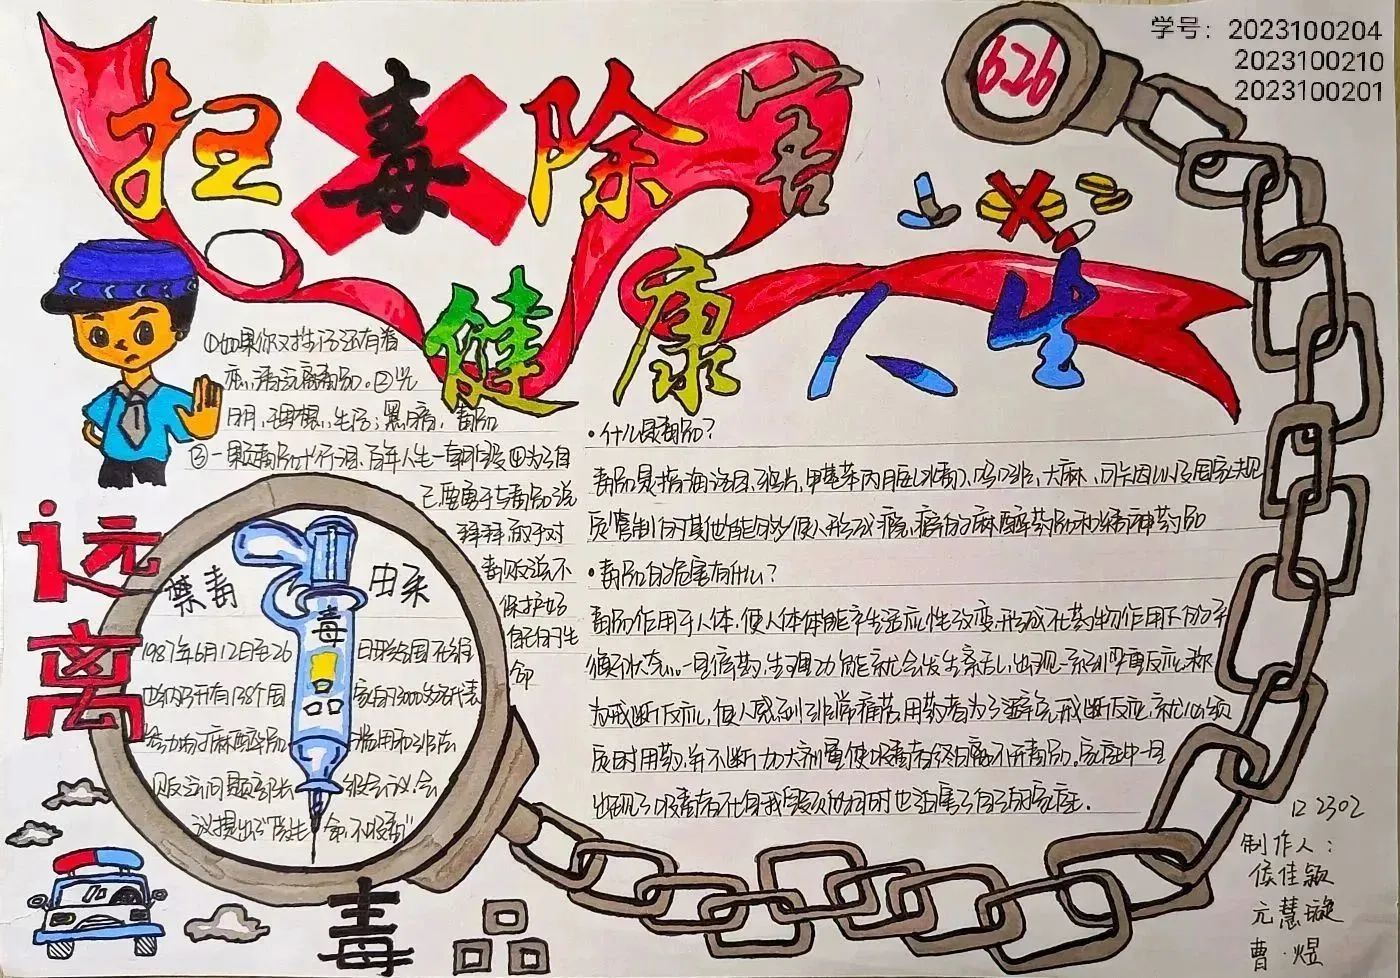 学号：2023100204
2023100210
2023100201
626
扫毒除害
健康人生
①如果你对生活还有着
恋，请远离毒品。②光
明，理想，生活；黑暗，毒品
③一颗毒品十行泪，百年人生一朝毁④为了自
己要勇于与毒品说
拜拜敢于对
毒贩说不
保护好
自己的生
命
·什么是毒品？
毒品是指海洛因、鸦片、甲基苯丙胺（冰毒）、吗啡、大麻、可卡因以及国家规
定管制的其他能够使人形成瘾癖的麻醉药品和精神药品
·毒品的危害有什么？
毒品作用于人体，使人体体能产生适应性改变，形成在药物作用下的
状态。一旦停药，生理功能就会发生紊乱，出现一系列严重反应，称
为戒断反应，使人感到非常痛苦。用药者为了避免戒断反应，就必须
定时用药，并不断加大剂量，使吸毒者终日离不开毒品。家庭中一旦
出现了吸毒者，在自我毁灭的同时也迫害了自己的家庭。
远离
毒品
禁毒由来
毒品
1987年6月12日至26日联合国在维
也纳召开有138个国家的3000多名代表
参加的麻醉品滥用和非法
贩运问题部长级会议，会
议提出了“爱生命，不吸毒”
2302
制作人：
侯佳颖
亓慧璇
曹·煜